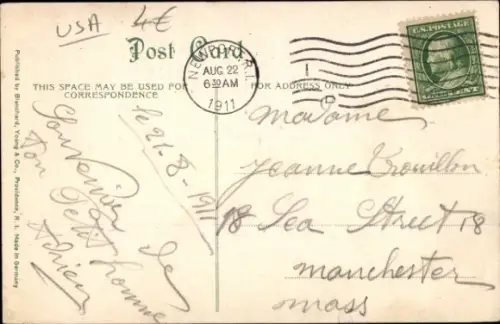 USA 4€
Post Card
THIS SPACE MAY BE USED FOR
CORRESPONDENCE
FOR ADDRESS ONLY
NEWPORT, R.I.
AUG 22
6 30 AM
1911
U.S. POSTAGE
Published by Blanchard, Young & Co., Providence, R. I. Made in Germany
le 21-8-1911
Souvenir de
ton Petit homme
Adrien
Madame
Jeanne Trouillon
18 Sea Street 18
Manchester
Mass